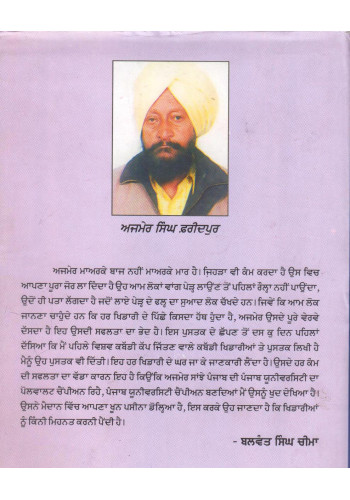 ਅਜਮੇਰ ਸਿੰਘ ਫ਼ਰੀਦਪੁਰ
ਅਜਮੇਰ ਮਾਅਰਕੇ ਬਾਜ ਨਹੀਂ ਮਾਅਰਕੇ ਮਾਰ ਹੈ। ਜਿਹੜਾ ਵੀ ਕੰਮ ਕਰਦਾ ਹੈ ਉਸ ਵਿਚ
ਆਪਣਾ ਪੂਰਾ ਜੋਰ ਲਾ ਦਿੰਦਾ ਹੈ ਉਹ ਆਮ ਲੋਕਾਂ ਵਾਂਗ ਪੇੜ੍ਹ ਲਾਉਂਣ ਤੋਂ ਪਹਿਲਾਂ ਰੌਲ੍ਹਾ ਨਹੀਂ ਪਾਉਂਦਾ,
ਉਦੋਂ ਹੀ ਪਤਾ ਲੱਗਦਾ ਹੈ ਜਦੋਂ ਲਾਏ ਪੇੜ੍ਹ ਦੇ ਫਲ੍ਹ ਦਾ ਸੁਆਦ ਲੋਕ ਚੱਖਦੇ ਹਨ। ਜਿਵੇਂ ਕਿ ਆਮ ਲੋਕ
ਜਾਨਣਾ ਚਾਹੁੰਦੇ ਹਨ ਕਿ ਹਰ ਖਿਡਾਰੀ ਦੇ ਪਿੱਛੇ ਕਿਸਦਾ ਹੱਥ ਹੁੰਦਾ ਹੈ, ਅਜਮੇਰ ਉਸਦੇ ਪੂਰੇ ਵੇਰਵੇ
ਦੱਸਦਾ ਹੈ ਇਹ ਉਸਦੀ ਸਫਲਤਾ ਦਾ ਭੇਦ ਹੈ। ਇਸ ਪੁਸਤਕ ਦੇ ਛੱਪਣ ਤੋਂ ਦਸ ਕੁ ਦਿਨ ਪਹਿਲਾਂ
ਦੱਸਿਆ ਕਿ ਮੈਂ ਪਹਿਲੇ ਵਿਸ਼ਵ ਕਬੱਡੀ ਕੱਪ ਜਿੱਤਣ ਵਾਲੇ ਕਬੱਡੀ ਖਿਡਾਰੀਆਂ ਤੇ ਪੁਸਤਕ ਲਿਖੀ ਹੈ
ਮੈਨੂੰ ਉਹ ਪੁਸਤਕ ਵੀ ਦਿੱਤੀ। ਇਹ ਹਰ ਖਿਡਾਰੀ ਦੇ ਘਰ ਜਾ ਕੇ ਜਾਣਕਾਰੀ ਲੈਂਦਾ ਹੈ। ਉਸਦੇ ਹਰ ਕੰਮ
ਦੀ ਸਫਲਤਾ ਦਾ ਵੱਡਾ ਕਾਰਨ ਇਹ ਹੈ ਕਿਉਂਕਿ ਅਜਮੇਰ ਸਾਂਝੇ ਪੰਜਾਬ ਦੀ ਪੰਜਾਬ ਯੂਨੀਵਰਸਿਟੀ ਦਾ
ਪੋਲਵਾਲਟ ਚੈਂਪੀਅਨ ਰਿਹੈ, ਪੰਜਾਬ ਯੂਨੀਵਰਸਿਟੀ ਚੈਂਪੀਅਨ ਬਣਦਿਆਂ ਮੈਂ ਉਸਨੂੰ ਖੁਦ ਦੇਖਿਆ ਹੈ।
ਉਸਨੇ ਮੈਦਾਨ ਵਿੱਚ ਆਪਣਾ ਖੂਨ ਪਸੀਨਾ ਡੋਲ੍ਹਿਆ ਹੈ, ਇਸ ਕਰਕੇ ਉਹ ਜਾਣਦਾ ਹੈ ਕਿ ਖਿਡਾਰੀਆਂ
ਨੂੰ ਕਿੰਨੀ ਮਿਹਨਤ ਕਰਨੀ ਪੈਂਦੀ ਹੈ।
- ਬਲਵੰਤ ਸਿੰਘ ਚੀਮਾ